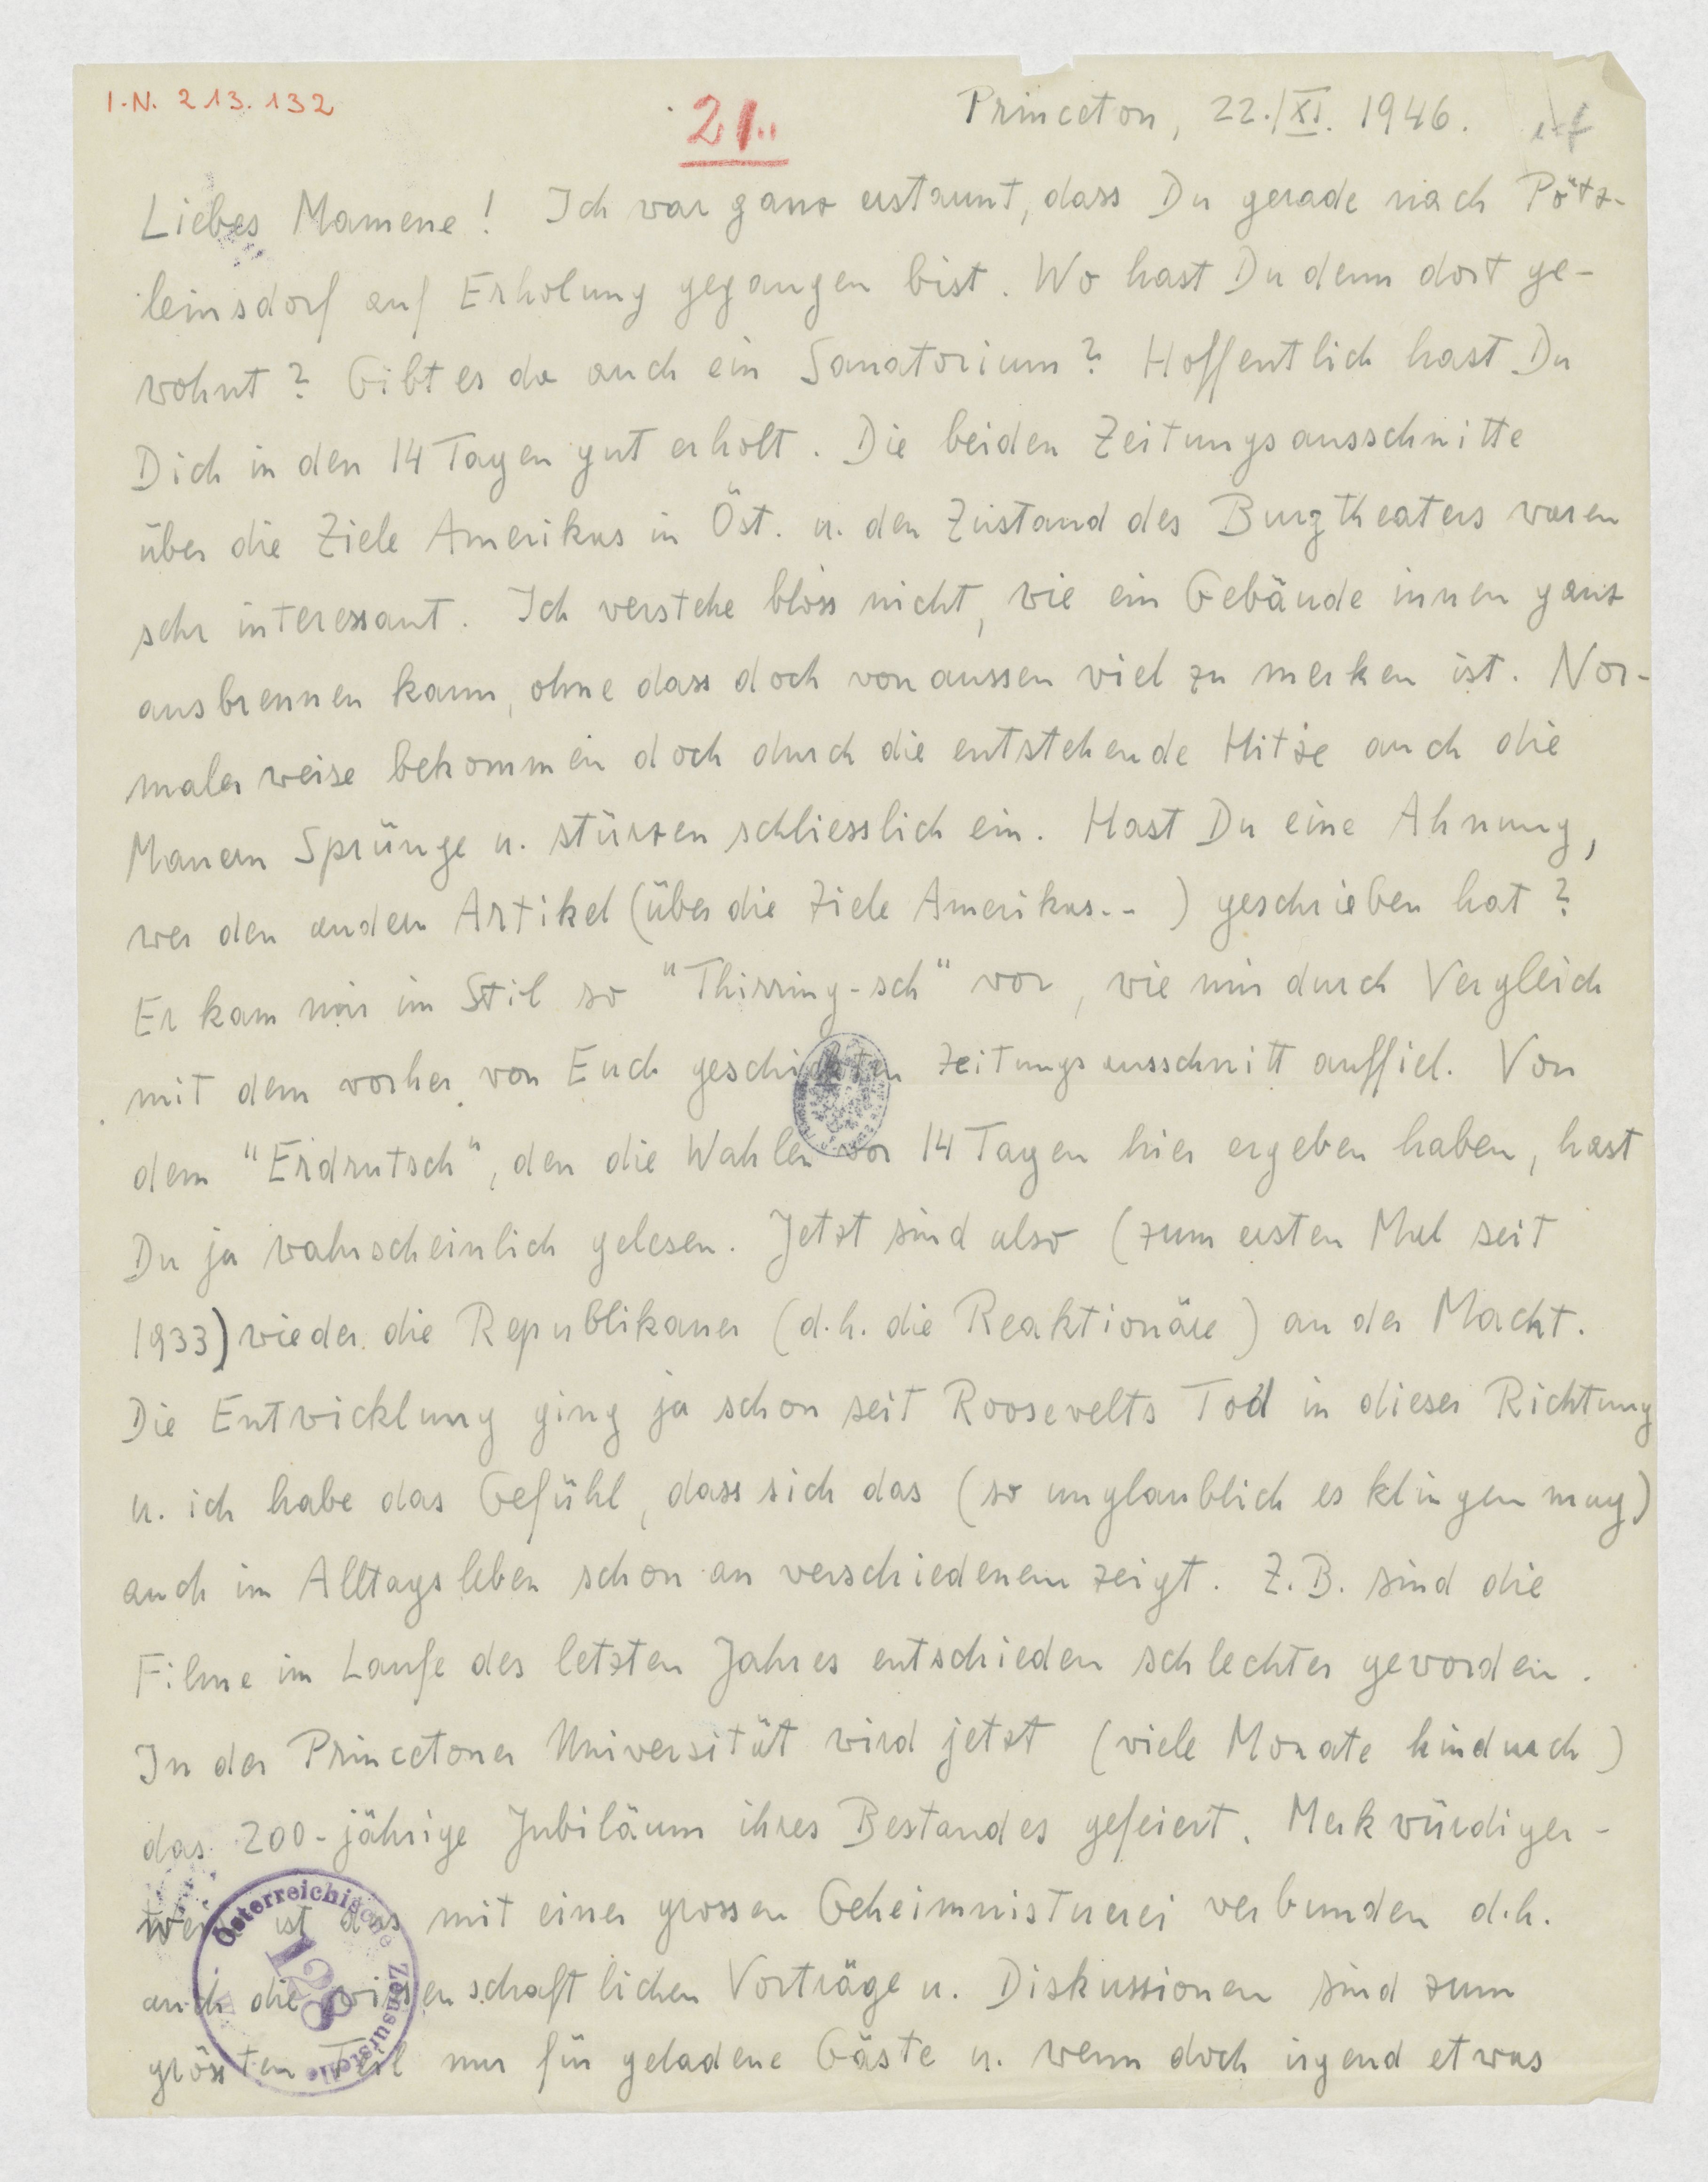 I.N. 213.132
21.
Princeton, 22./XI. 1946.
Liebes Mamene! Ich war ganz erstaunt, dass Du gerade nach Pötz-
leinsdorf auf Erholung gegangen bist. Wo hast Du denn dort ge-
wohnt? Gibt es da auch ein Sanatorium? Hoffentlich hast Du
Dich in den 14 Tagen gut erholt. Die beiden Zeitungsausschnitte
über die Ziele Amerikas in Öst. u. den Zustand des Burgtheaters waren
sehr interessant. Ich verstehe bloss nicht, wie ein Gebäude innen ganz
ausbrennen kann, ohne dass doch von aussen viel zu merken ist. Nor-
maler weise bekommen doch durch die entstehende Hitze auch die
Mauern Sprünge u. stürzen schliesslich ein. Hast Du eine Ahnung,
wer den andern Artikel (über die Ziele Amerikas..) geschrieben hat?
Er kam mir im Stil so "Thirring-sch" vor, wie mir durch Vergleich
mit dem vorher von Euch geschickten Zeitungsausschnitt auffiel. Von
dem "Erdrutsch", den die Wahlen vor 14 Tagen hier ergeben haben, hast
Du ja wahrscheinlich gelesen. Jetzt sind also (zum ersten Mal seit
1933) wieder die Republikaner (d.h. die Reaktionäre) an der Macht.
Die Entwicklung ging ja schon seit Roosevelts Tod in dieser Richtung
u. ich habe das Gefühl, dass sich das (so unglaublich es klingen mag)
auch im Alltagsleben schon an verschiedenem zeigt. Z.B. sind die
Filme im Laufe des letzten Jahres entschieden schlechter geworden.
In der Princetoner Universität wird jetzt (viele Monate hindurch)
das 200-jährige Jubiläum ihres Bestandes gefeiert. Merkwürdiger-
weise ist das mit einer grossen Geheimnistuerei verbunden d.h.
auch die wissenschaftlichen Vorträge u. Diskussionen sind zum
grössten Teil nur für geladene Gäste u. wenn doch irgend etwas
Österreichische Zensurstelle
128